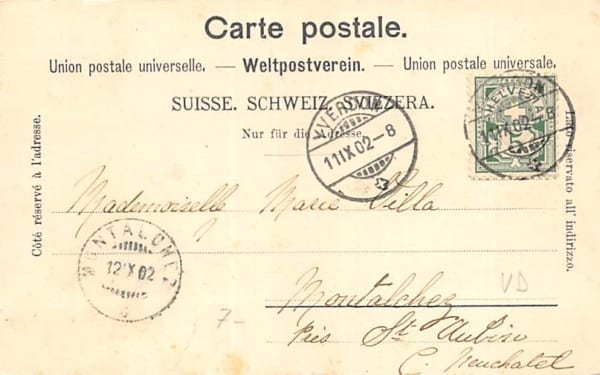 Carte postale.
Union postale universelle. — Weltpostverein. — Union postale universale.
SUISSE. SCHWEIZ. SVIZZERA.
Nur für die Adresse.
Côté réservé à l'adresse.
Lato riservato all' indirizzo.
YVERDON
11 IX 02-8
HELVETIA
YVERDON
11 IX 02-8
Mademoiselle Marie Villa
MONTALCHEZ
12 X 02
Montalchez
VD
7-
Près St Aubin
C. Neuchatel